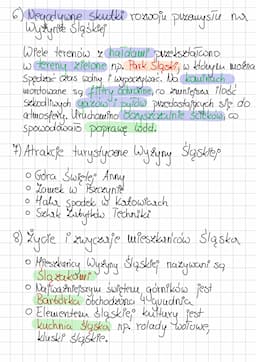 6) Negatywne skutki rozwoju przemysłu na
Wyżynie Śląskiej
Wiele terenów z hałdami przekształcono
w tereny zielone np. Park Śląski, w którym można
spędzać czas wolny i wypoczywać. Na kominach
montowane są filtry ochronne, co zmniejsza ilość
szkodliwych gazów i pyłów przedostających się do
atmosfery. Uruchomiono oczyszczalnie ścieków, co
spowodowało poprawę wód.
7) Atrakcje turystyczne Wyżyny Śląskiej
○ Góra Świętej Anny
○ Zamek w Pszczynie
○ Hala spodek w Katowicach
○ Szlak Zabytków Techniki
8) Życie i zwyczaje mieszkańców Śląska
○ Mieszkańcy Wyżyny Śląskiej nazywani są
Ślązakami
○ Najważniejszym świętem górników jest
Barbórka obchodzona 4 grudnia.
○ Elementem śląskiej kultury jest
kuchnia śląska np. rolady wołowe,
kluski śląskie.